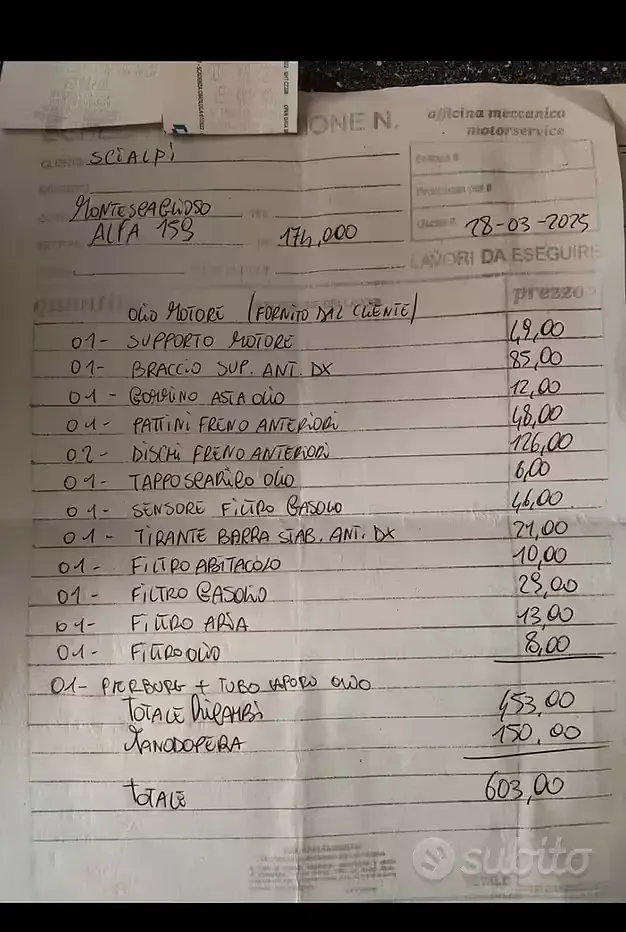 IONE N.
officina meccanica
motorservice
CLIENTE SCIALPI
MONTESCAGLIOSO
ALFA 159 174,000
Uscita il 28-03-2025
LAVORI DA ESEGUIRE
quantità prezzo
OLIO MOTORE (FORNITO DAL CLIENTE)
01- SUPPORTO MOTORE 49,00
01- BRACCIO SUP. ANT. DX 85,00
01- GOMMINO ASTA OLIO 12,00
01- PATTINI FRENO ANTERIORI 48,00
02- DISCHI FRENO ANTERIORI 126,00
01- TAPPO SCARICO OLIO 6,00
01- SENSORE FILTRO GASOLIO 46,00
01- TIRANTE BARRA STAB. ANT. DX 21,00
01- FILTRO ABITACOLO 10,00
01- FILTRO GASOLIO 29,00
01- FILTRO ARIA 13,00
01- FILTRO OLIO 8,00
01- PIERBURG + TUBO VAPORI OLIO
TOTALE RICAMBI 453,00
MANODOPERA 150,00
TOTALE 603,00
TOTALE
subito